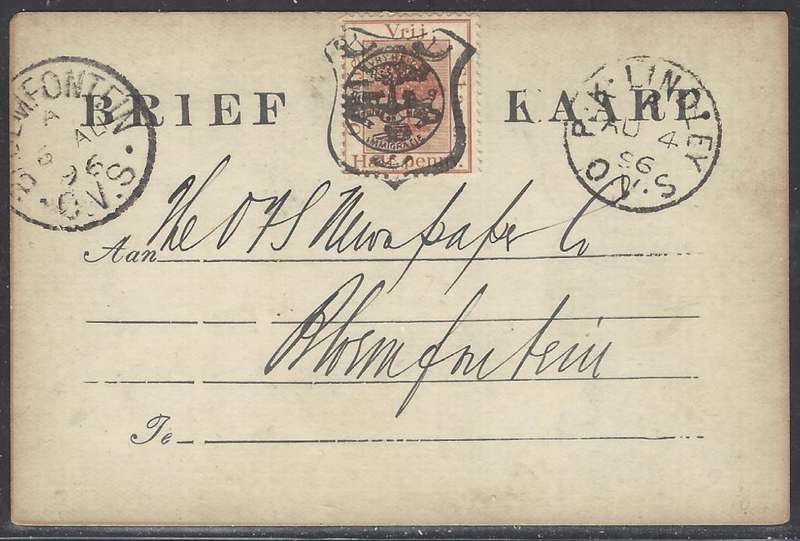 Vrij
BRIEF KAART.
IMMIGRATIE
Half penny
BLOEMFONTEIN
A
AU
6
96
O.V.S.
P.K. LINDLEY
AU 4
96
O.V.S
Aan The OFS Newspaper Co
Bloemfontein
Te